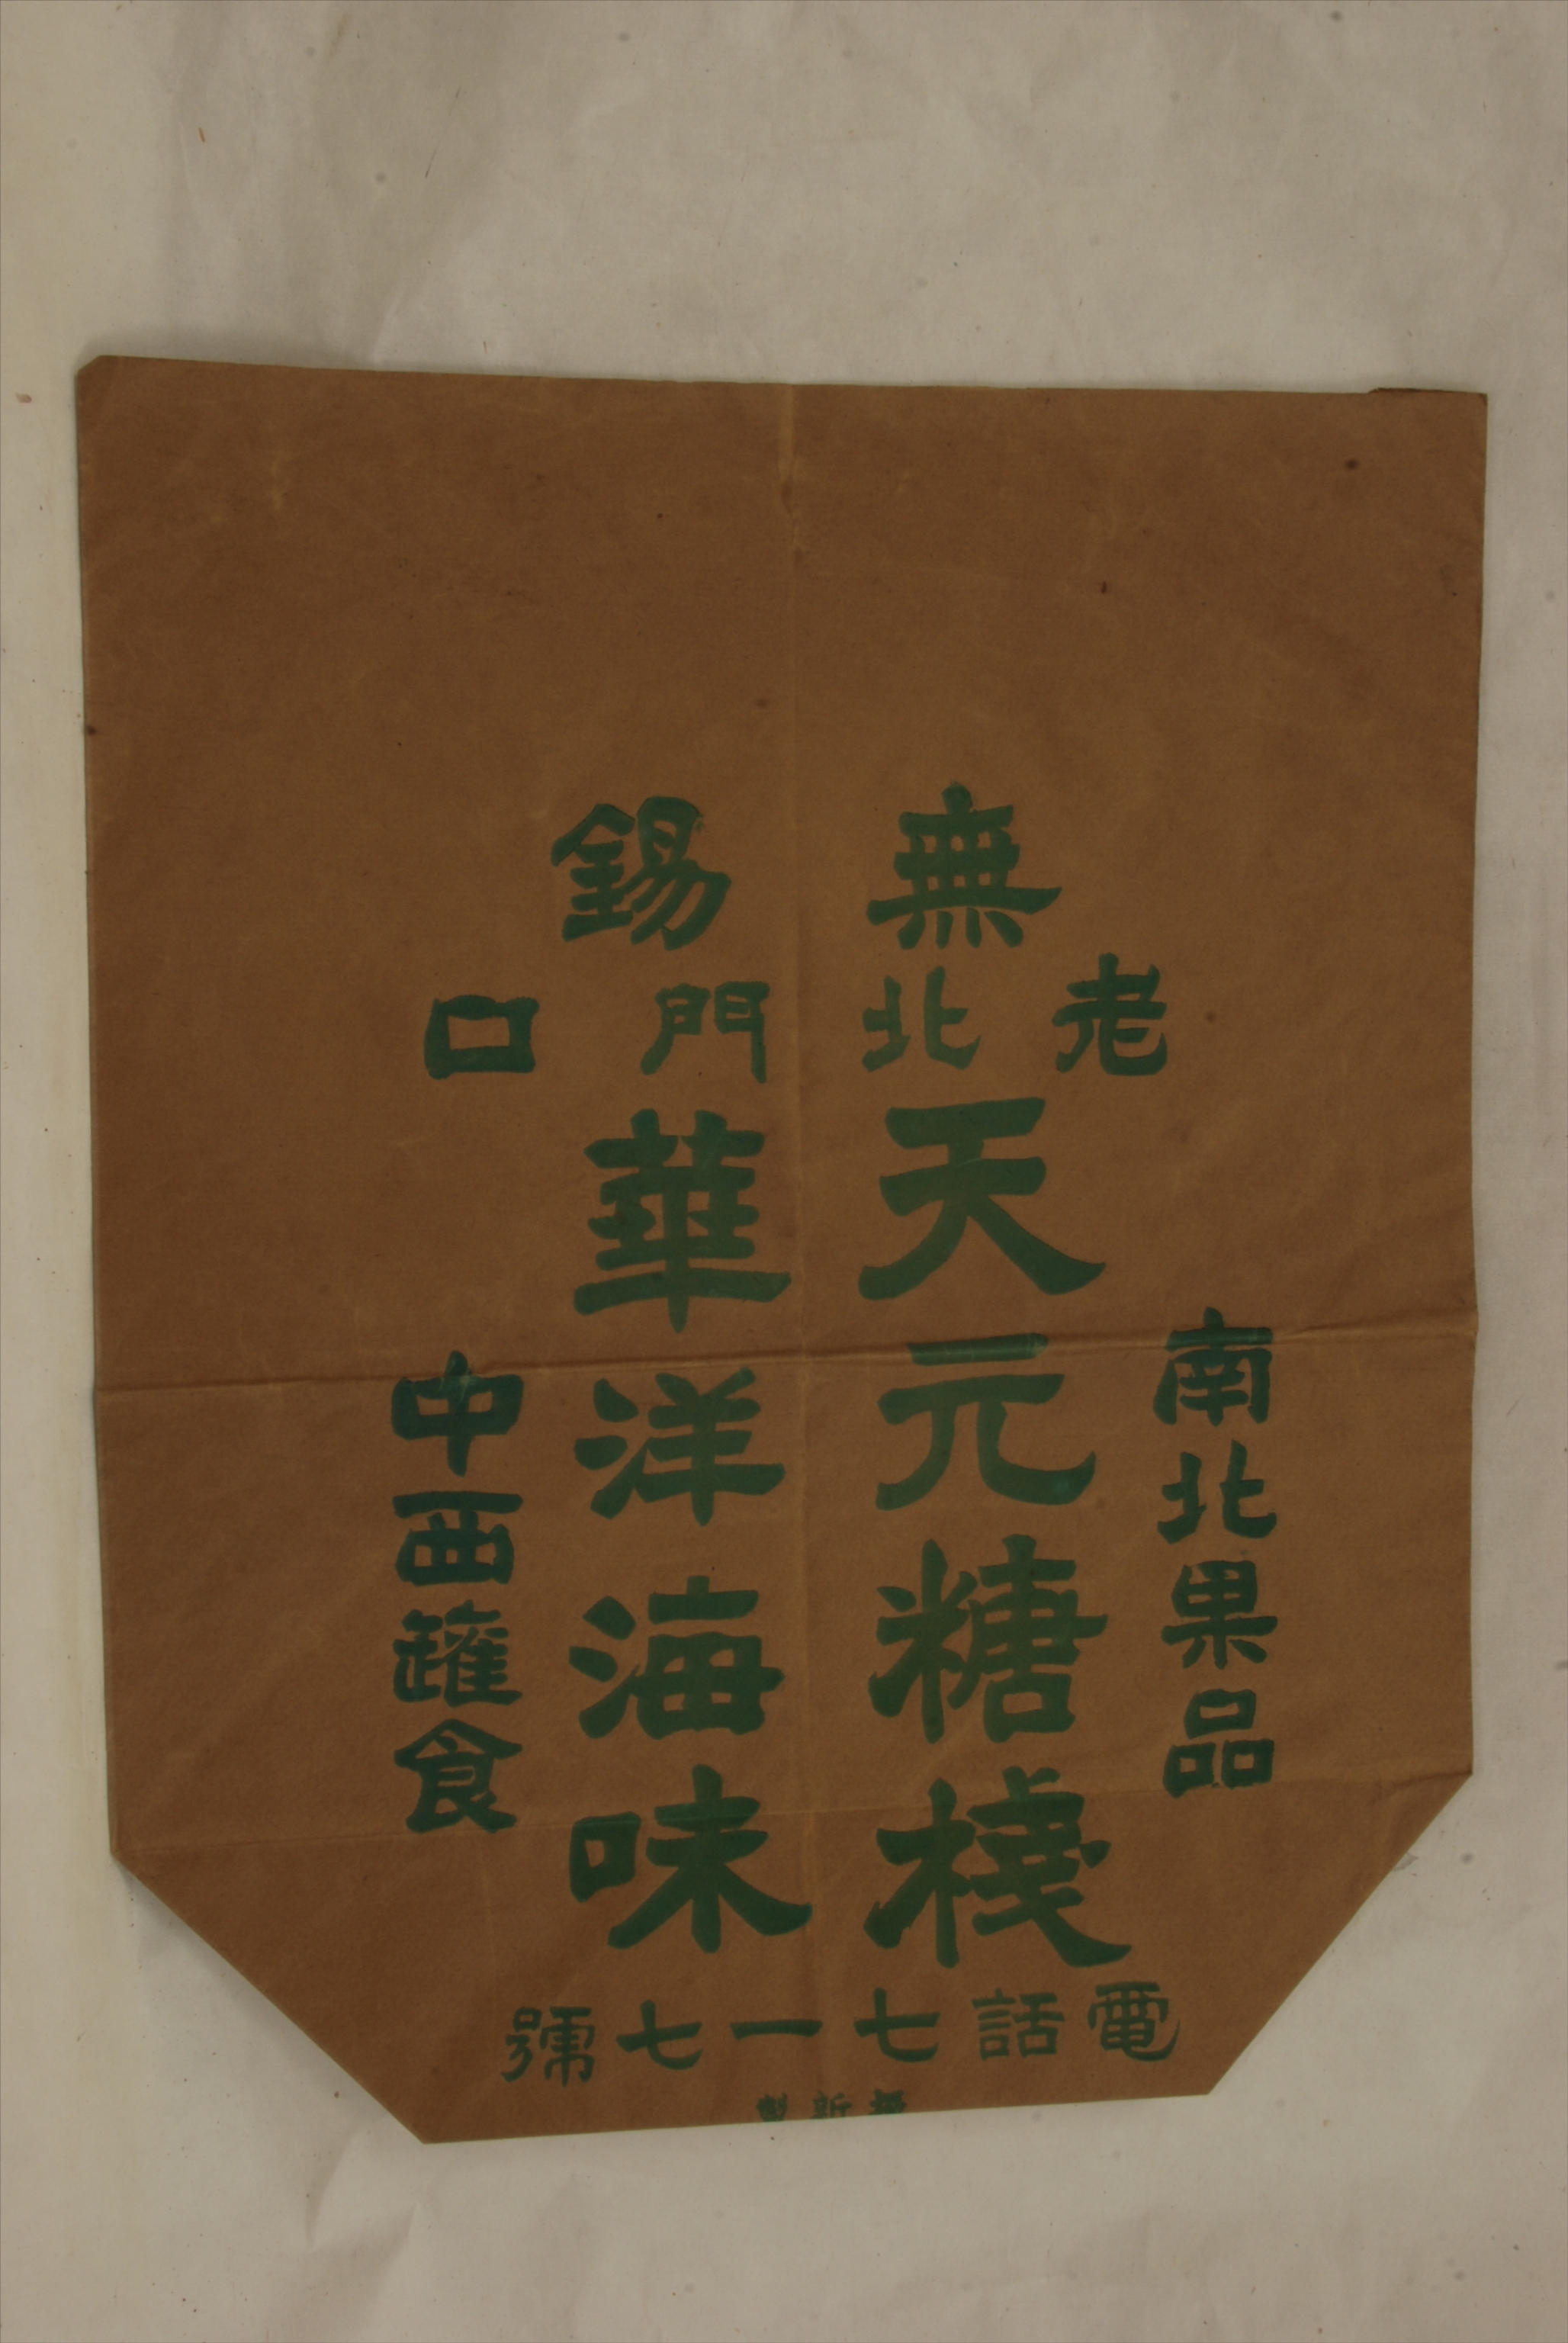 無錫
老北門口
南北果品
天元糖棧
華洋海味
中西罐食
電話七一七號